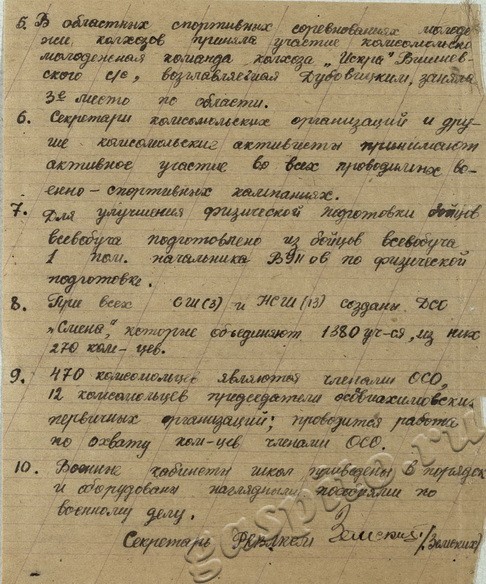 5. В областных спортивных соревнованиях молоде-
жи колхозов приняла участие комсомольско
молодежная команда колхоза „Искра" Вишнев-
ского с/с, возглавляемая Дубовицким, заняла
3е место по области.
6. Секретари комсомольских организаций и дру-
гие комсомольские активисты принимают
активное участие во всех проводимых во-
енно-спортивных кампаниях.
7. Для улучшения физической подготовки бойцов
всевобуча подготовлено из бойцов всевобуча
1 пом. начальника ВУП ов по физической
подготовке.
8. При всех СШ(3) и НСШ(13) созданы ДСО
„Смена", которые объединяют 1380 уч-ся, из них
270 ком-цев.
9. 470 комсомольцев являются членами ОСО,
12 комсомольцев председатели осоавиахимовских
первичных организаций; проводится работа
по охвату ком-цев членами ОСО.
10. Военные кабинеты школ приведены в порядок
и оборудованы наглядными пособиями по
военному делу.
Секретарь Земский /Земских/
gaspito.ru